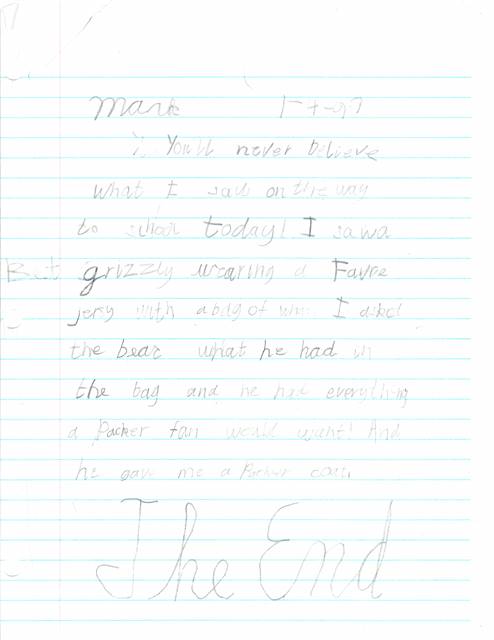 Mark 1-7-97
You'll never believe
what I saw on the way
to school today! I saw a
grizzly wearing a Favre
jersy with a bag of I asked
the bear what he had in
the bag and he had everything
a Packer fan would want! And
he gave me a Packer
The End